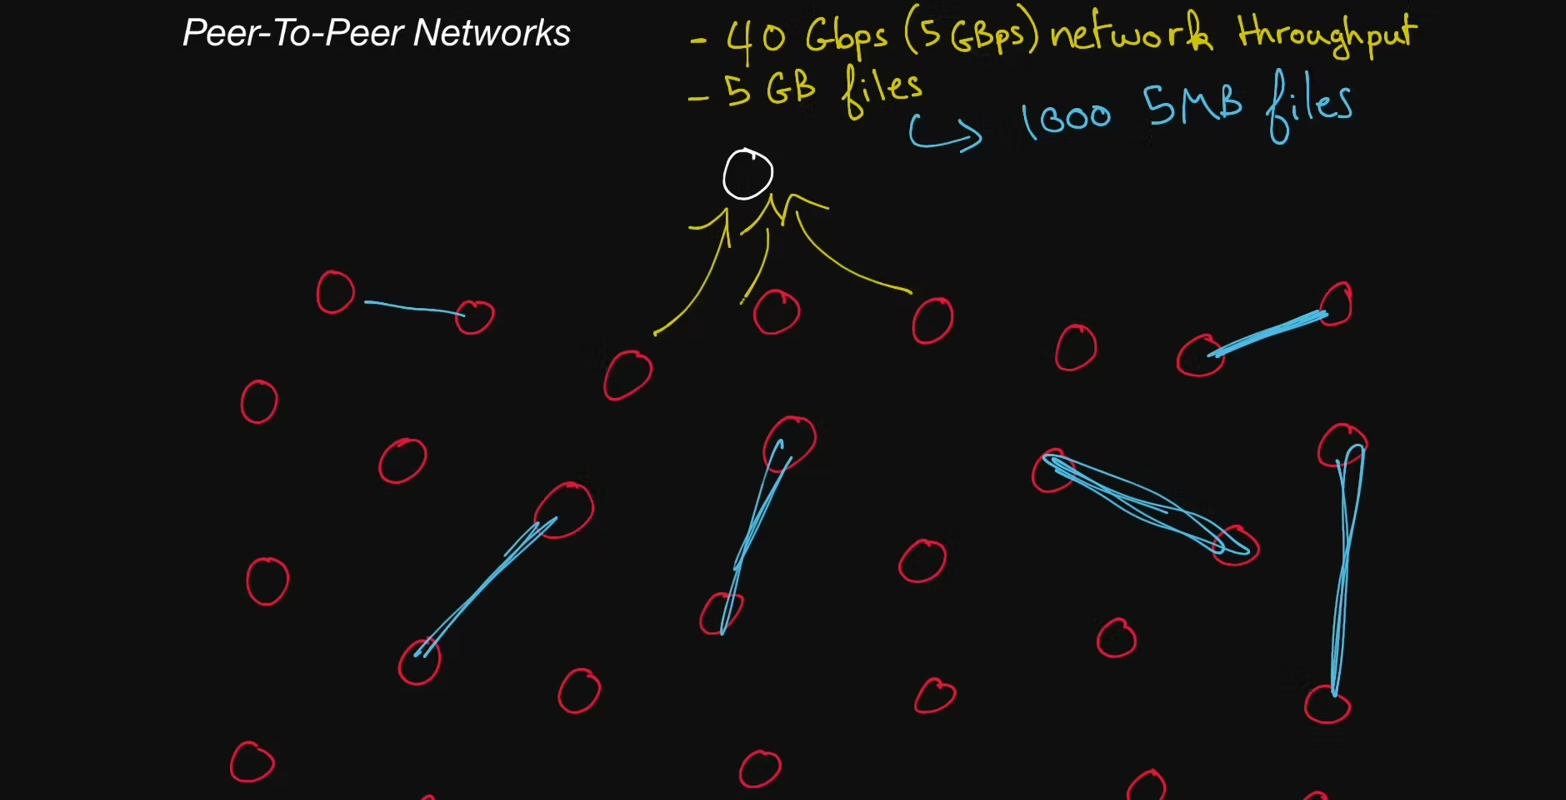 Peer-To-Peer Networks
- 40 Gbps (5 GBps) network throughput
- 5 GB files
1000 5MB files